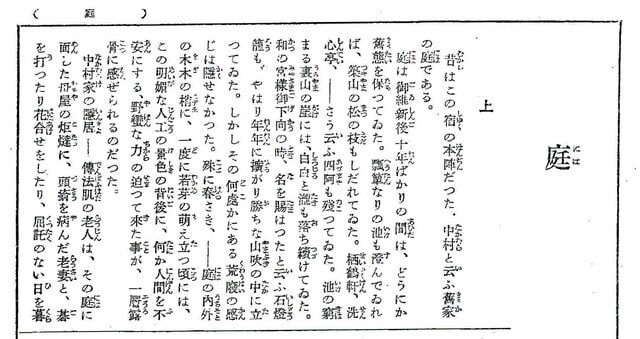 （庭）
庭
上
昔はこの宿の本陣だつた、中村と云ふ舊家
の庭である。
庭は御維新後十年ばかりの間は、どうにか
舊態を保つてゐた。瓢簞なりの池も澄んでゐれ
ば、築山の松の枝もしだれてゐた。栖鶴軒、洗
心亭、――さう云ふ四阿も殘つてゐた。池の窮
まる裏山の崖には、白白と瀧も落ち續けてゐた。
和の宮樣御下向の時、名を賜はつたと云ふ石燈
籠も、やはり年年に擴がり勝ちな山吹の中に立
つてゐた。しかしその何處かにある荒廢の感
じは隱せなかつた。殊に春さき、――庭の內外
の木木の梢に、一度に若芽の萌え立つ頃には、
この明媚な人工の景色の背後に、何か人間を不
安にする、野蠻な力の迫つて來た事が、一層露
骨に感ぜられるのだつた。
中村家の隱居――傳法肌の老人は、その庭に
面した母屋の炬燵に、頭瘡を病んだ老妻と、碁
を打つたり花合せをしたり、屈託のない日を暮